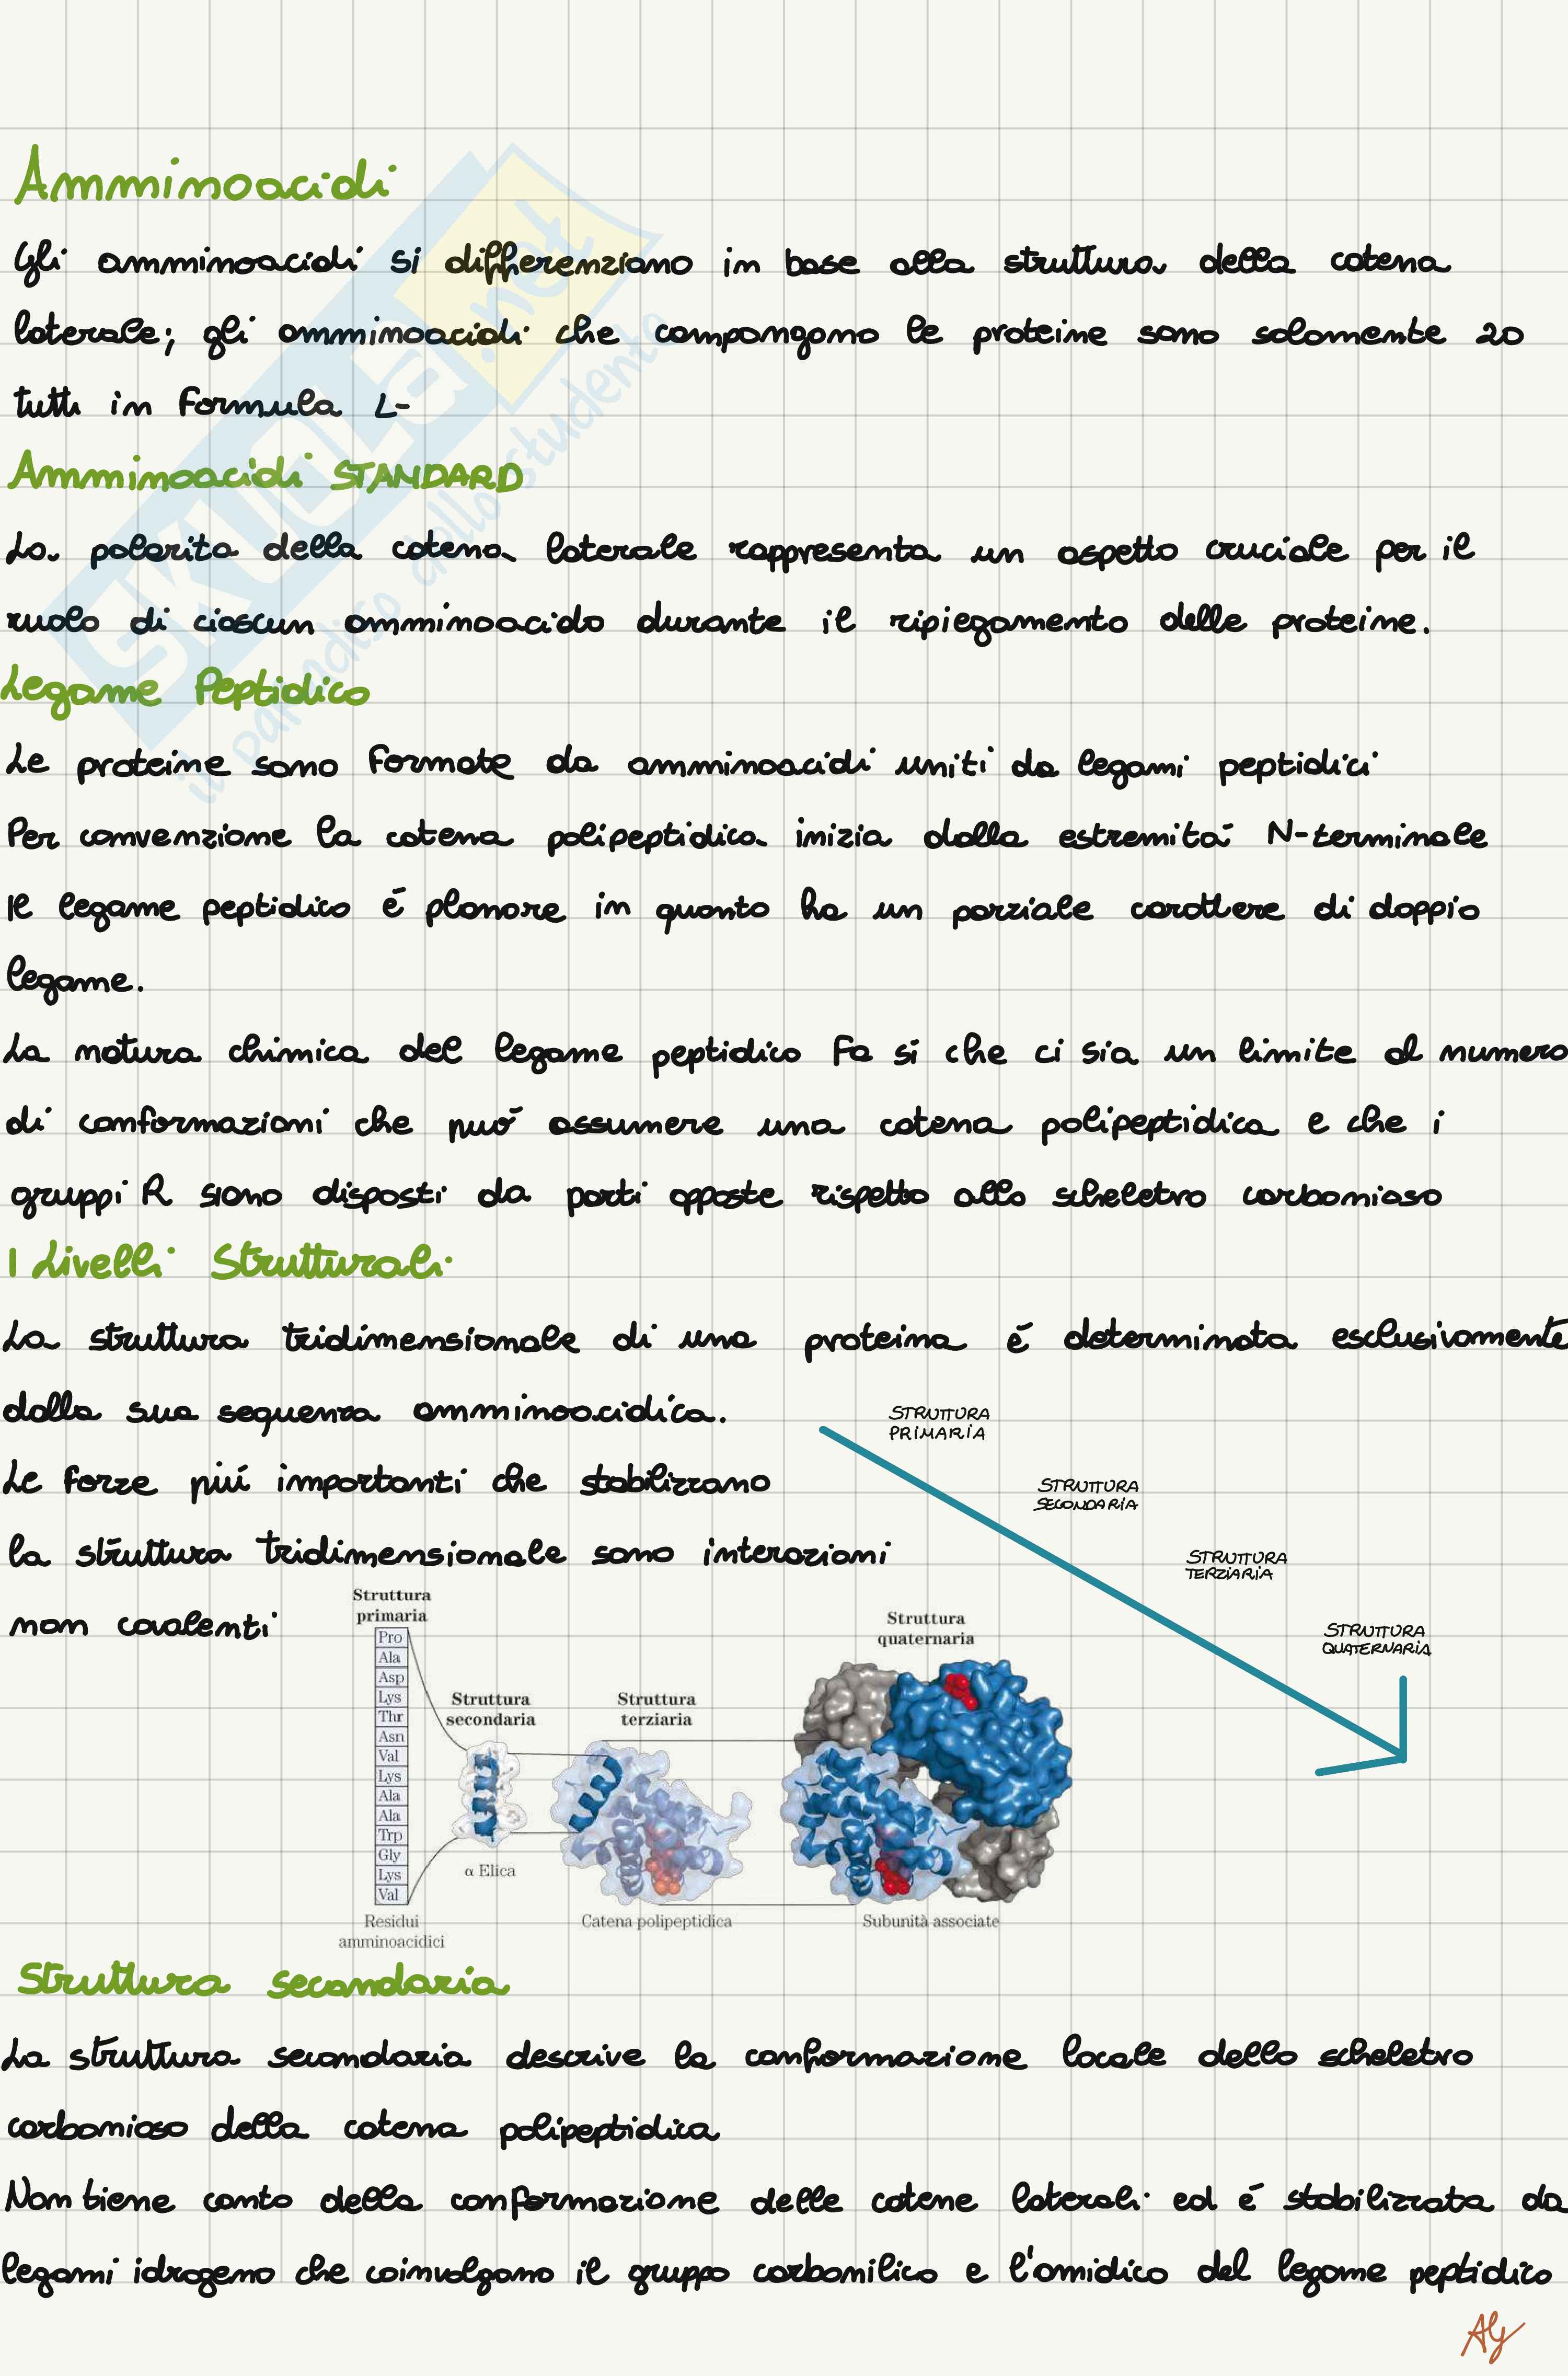 Amminoacidi
Gli amminoacidi si differenziano in base alla struttura della catena
laterale; gli amminoacidi che compongono le proteine sono solamente 20
tutti in formula L-
Amminoacidi STANDARD
La polarita della catena laterale rappresenta un aspetto cruciale per il
ruolo di ciascun amminoacido durante il ripiegamento delle proteine.
Legame Peptidico
Le proteine sono formate da amminoacidi uniti da legami peptidici
Per convenzione la catena polipeptidica inizia dalla estremità N-terminale
Il legame peptidico é planare in quanto ha un parziale carattere di doppio
legame.
La natura chimica del legame peptidico fa sí che ci sia un limite al numero
di conformazioni che puó assumere una catena polipeptidica e che i
gruppi R siano disposti da parti opposte rispetto allo scheletro carbonioso
I Livelli Strutturali
La struttura tridimensionale di una proteina é determinata esclusivamente
dalla sua sequenza amminoacidica.
Le forze piú importanti che stabilizzano
la struttura tridimensionale sono interazioni
non covalenti
STRUTTURA
PRIMARIA
STRUTTURA
SECONDARIA
STRUTTURA
TERZIARIA
STRUTTURA
QUATERNARIA
Struttura
primaria
Pro
Ala
Asp
Lys
Thr
Asn
Val
Lys
Ala
Ala
Trp
Gly
Lys
Val
Residui
amminoacidici
Struttura
secondaria
α Elica
Struttura
terziaria
Catena polipeptidica
Struttura
quaternaria
Subunità associate
Struttura secondaria
La struttura secondaria descrive la conformazione locale dello scheletro
carbonioso della catena polipeptidica
Non tiene conto della conformazione delle catene laterali ed é stabilizzata da
legami idrogeno che coinvolgono il gruppo carbonilico e l'amidico del legame peptidico
Aly
SKUOLA.net
il paradiso dello studente